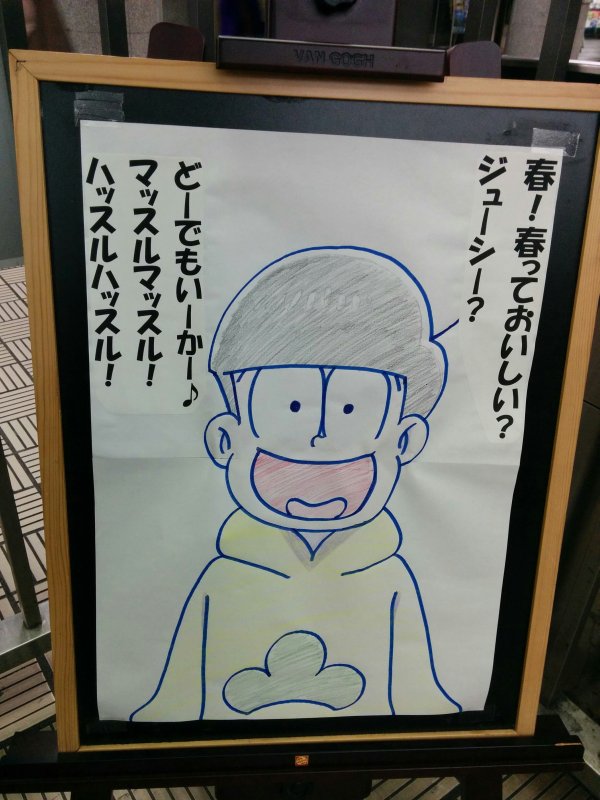 VAN GOGH
春！春っておいしい？
ジューシー？
どーでもいーかー♪
マッスルマッスル！
ハッスルハッスル！